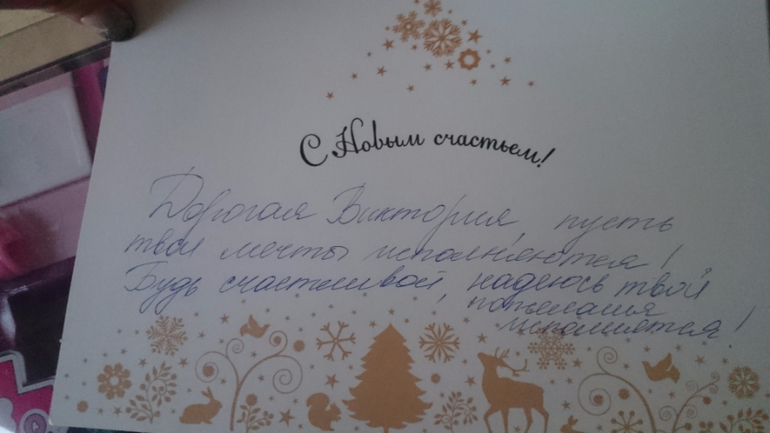 С Новым счастьем!
Дорогая Виктория, пусть
твои мечты исполняются!
Будь счастливой, надеюсь твой
пожелания
исполнятся!